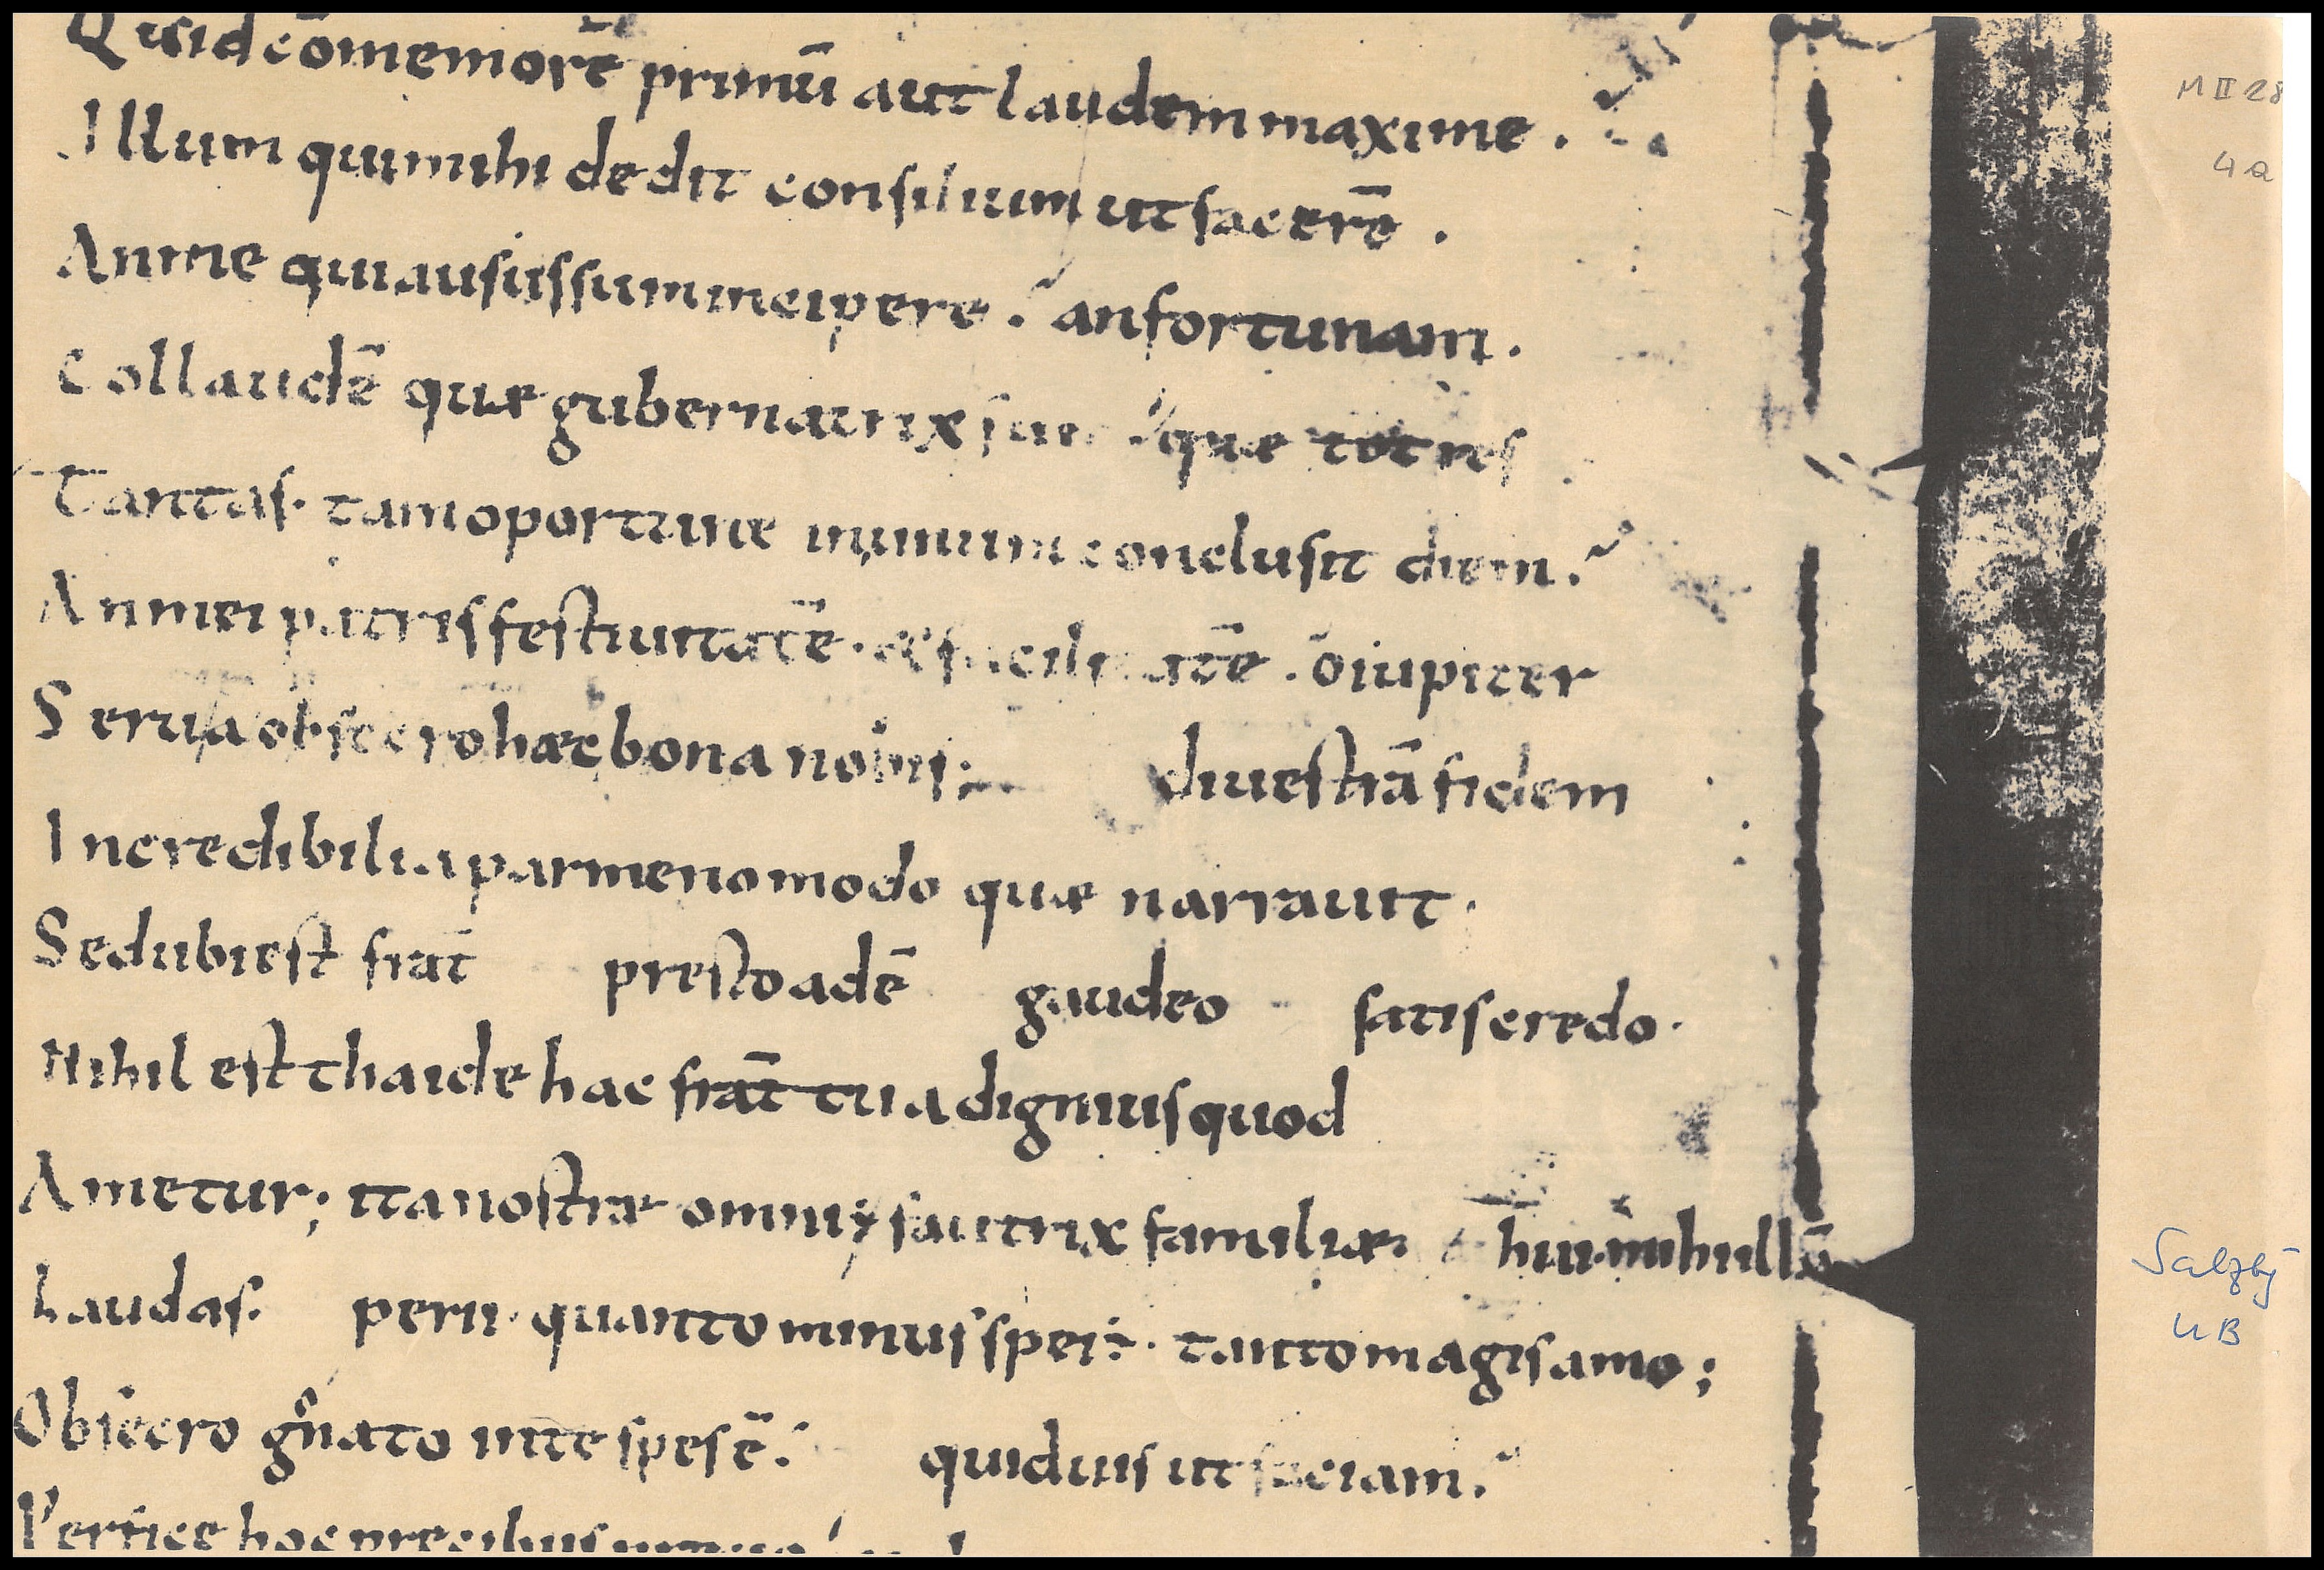 Quid cōmemorē primū aut laudem maxime .
M II 28
Illum qui mihi dedit consilium ut facerē .
4a
An me qui ausus sum incipere . an fortunam .
Collaudē quæ gubernatrix quæ tot res
Tantas . tam oportune in unum conclusit diem .
An mei patris festiuitatē . & facilitatē . ō iupiter
Serua obsecro hæc bona nobis ; di uestrā fidem
Incredibilia parmeno modo quæ narrauit .
Sed ubi est frat̄ presto adē gaudeo satis credo .
Nihil est thaide hac frat̄ tua dignius quod
Ametur ; ita nostræ omni fautrix familiæ . hui mihi illā
Laudas . perii . quanto minus spei ÷ . tanto magis amo ;
Salzbg
UB
Obsecro gnato in te spes ē . quid uis ut faciam .
Perfice hoc precibus